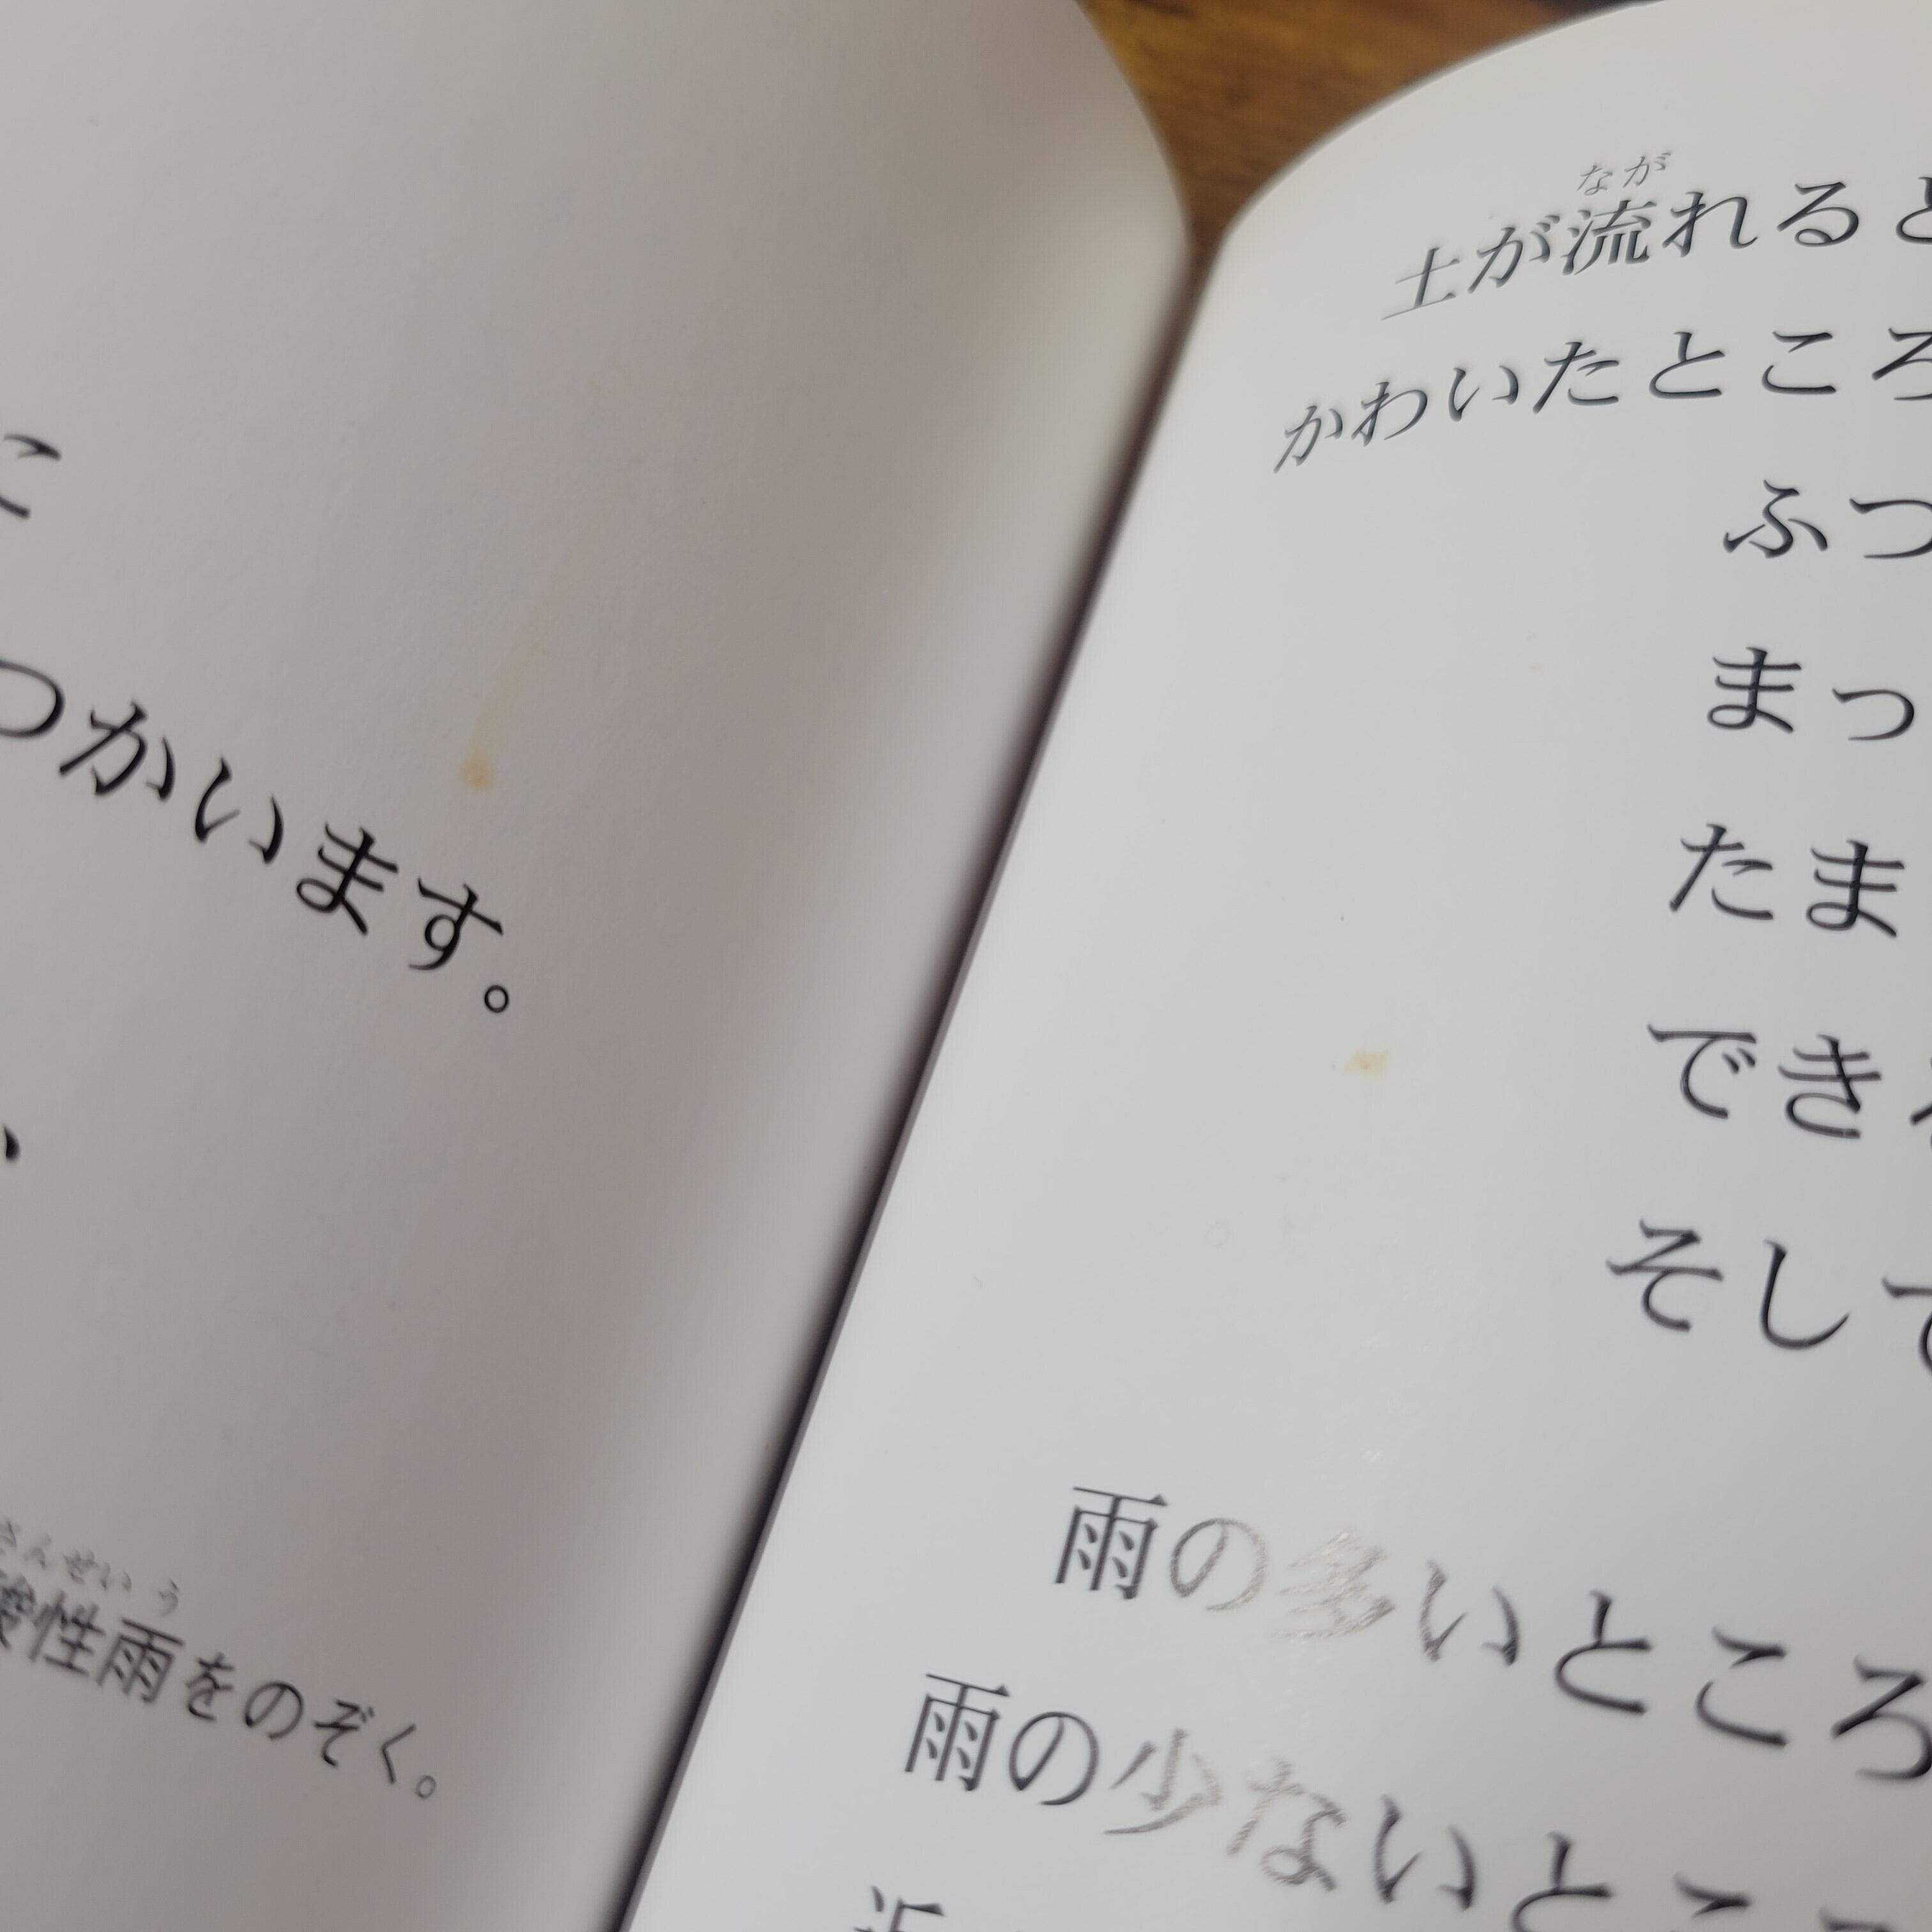 こ
つかいます。
さんせいう
酸性雨をのぞく。
なが
土が流れると
かわいたところ
ふつ
まっ
たま
でき
そして
雨の多いところ
雨の少ないとこ